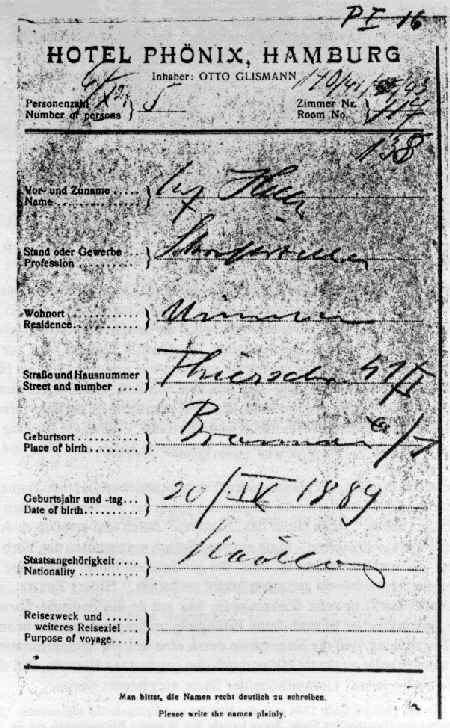 PI 16
HOTEL PHÖNIX, HAMBURG
Inhaber: OTTO GLISMANN
Personenzahl
Number of persons
5
Zimmer Nr.
Room No.
138
Vor- und Zuname
Name
Stand oder Gewerbe
Profession
Wohnort
Residence
Straße und Hausnummer
Street and number
Thiersch
Geburtsort
Place of birth
Braunau
Geburtsjahr und -tag
Date of birth
20/IV 1889
Staatsangehörigkeit
Nationality
Reisezweck und
weiteres Reiseziel
Purpose of voyage
Man bittet, die Namen recht deutlich zu schreiben.
Please write the names plainly.